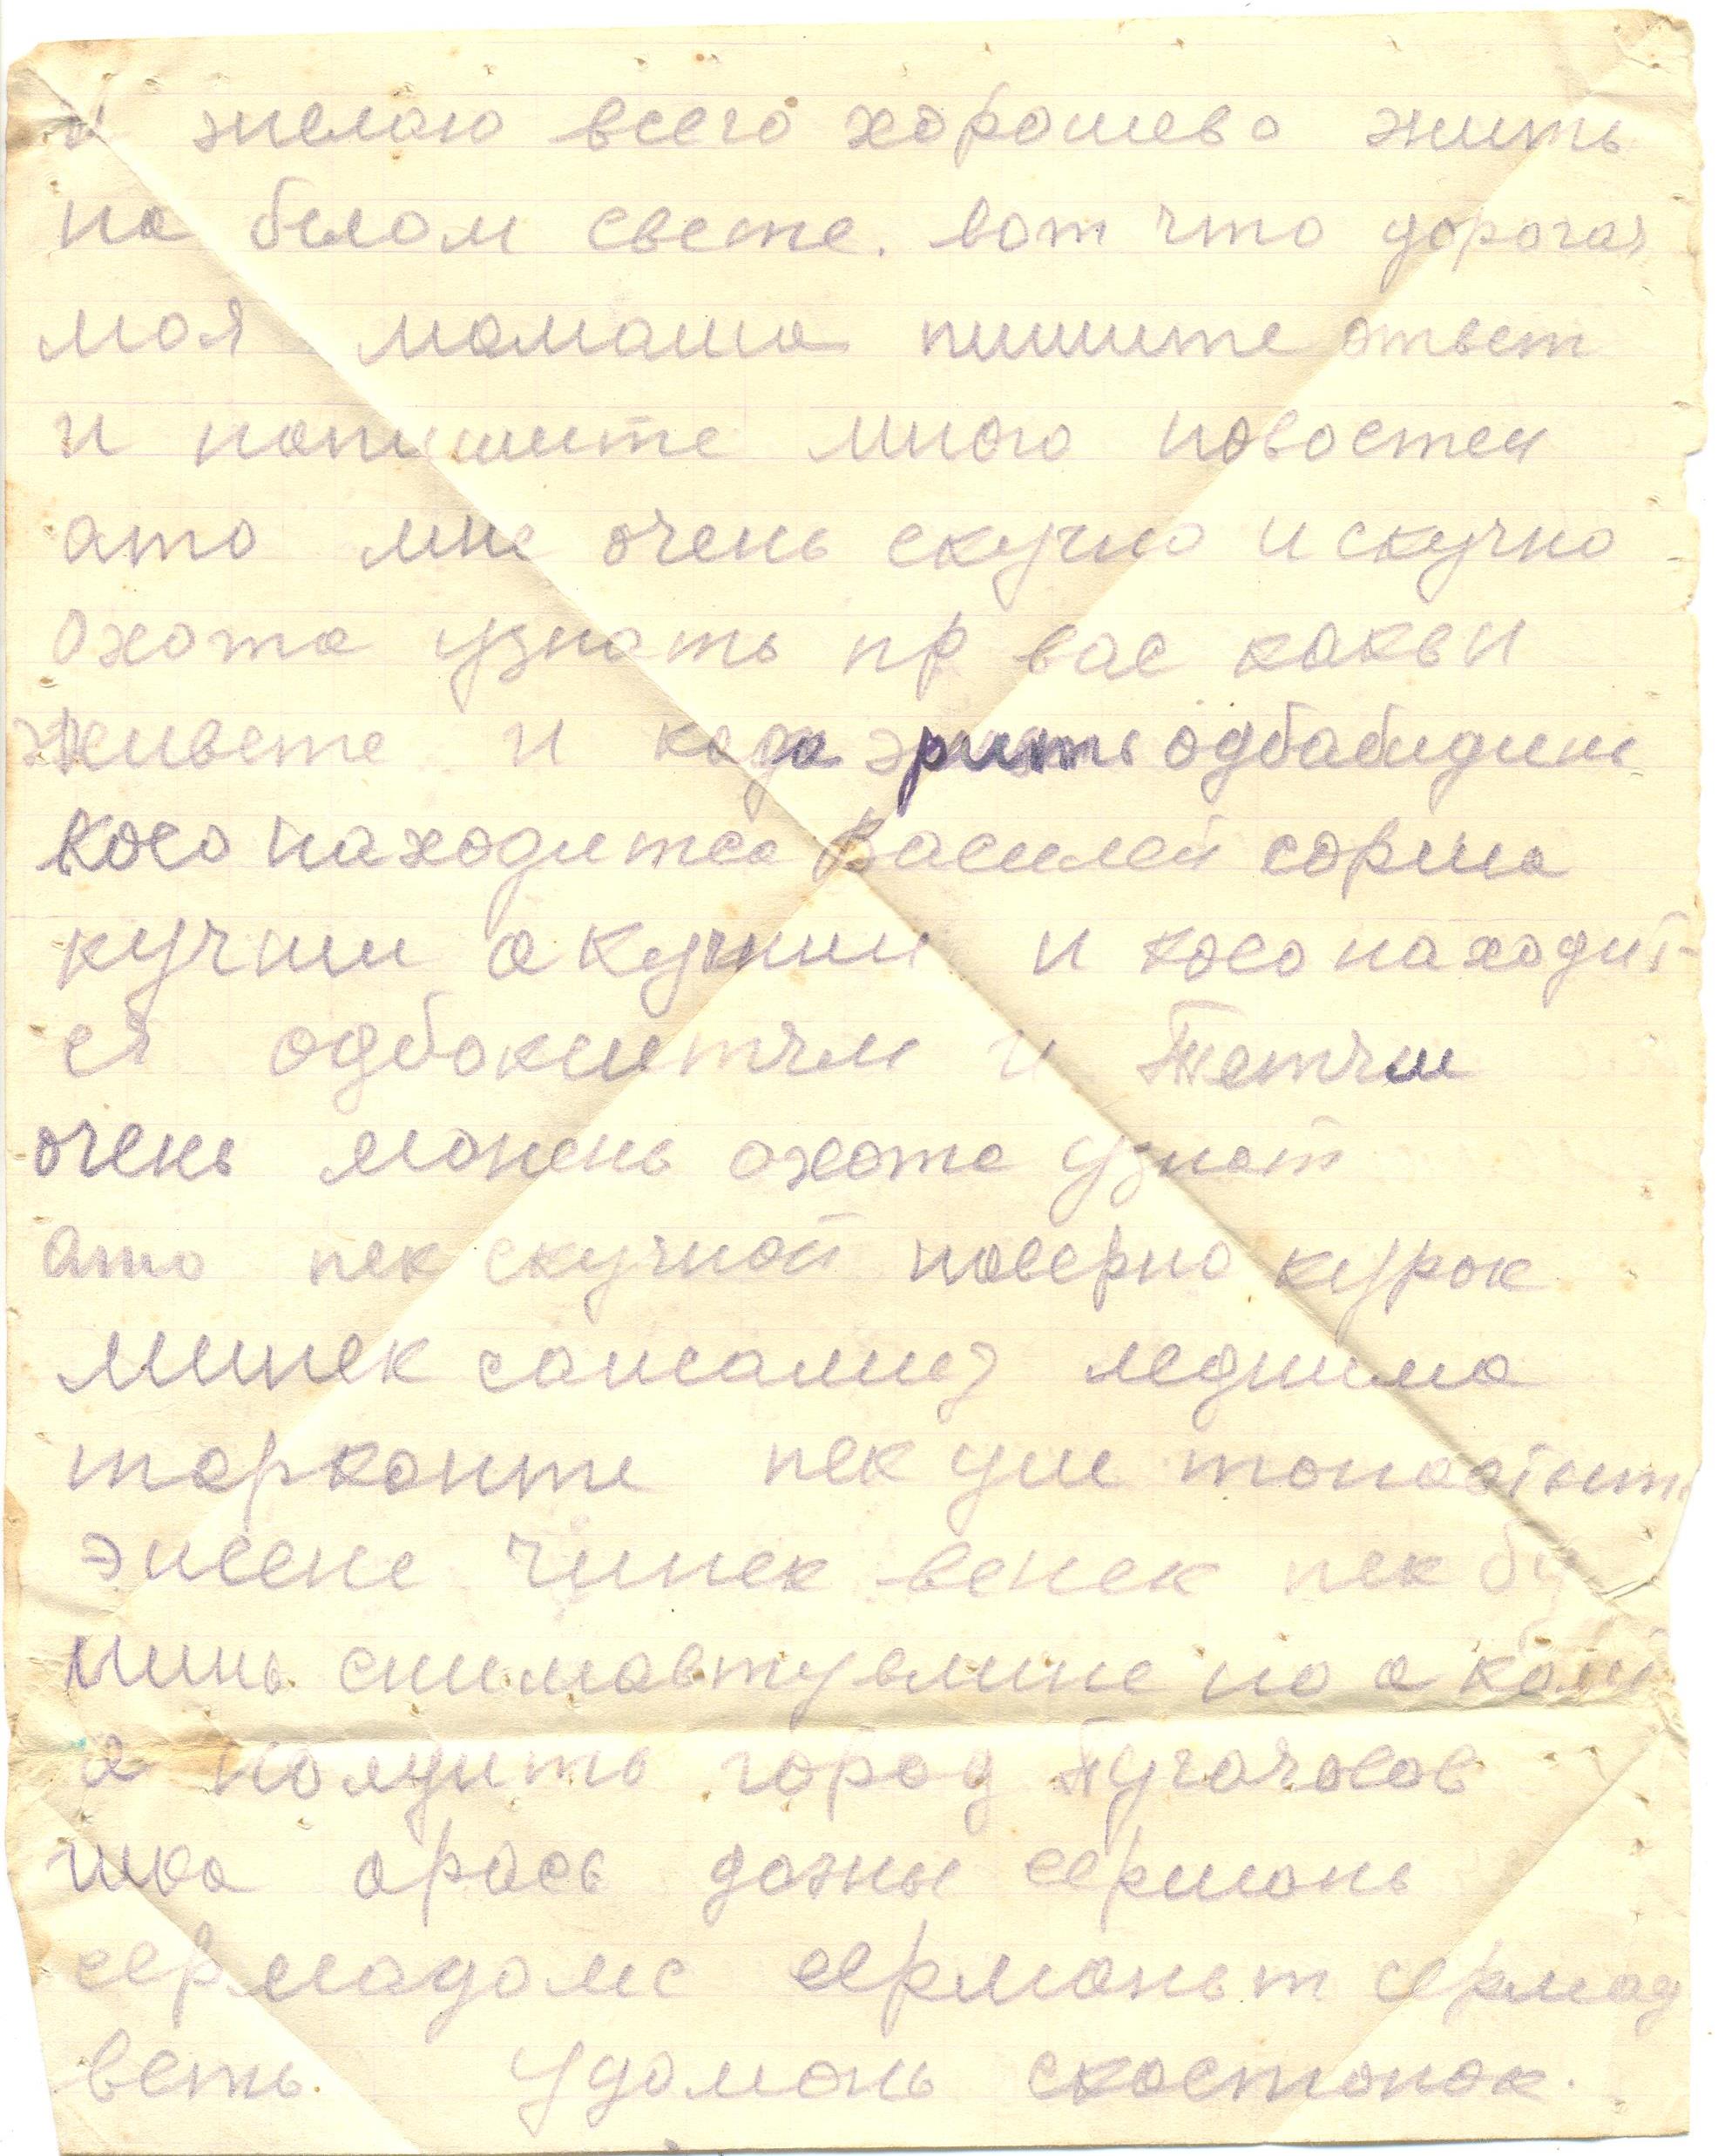 и желаю всего хорошево жить
на белом свете. вот что дорогая
моя мамаша пишите ответ
и напишите много новостеи
ато мне очень скучно и скучно
охота узнать пр вас какви
живете и када эрить одбабидине
косо находитса Василеи сорма
кучми а кучми и косо находит-
ся одбокитчм и Тетчм
очень монень охота узнат
ато пек скучной наверно курок
минек саисамиз ледиима
тарконте пек уш
эйсене чинек венек пек
минь снимавтувлине но а
а молдить город Пугачовов
арась дажны сермань
сермадомс сермоньт сермад
веть. Удомань скостонок.